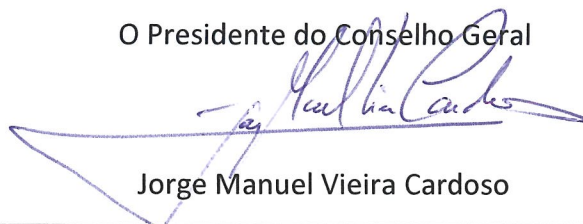 O Presidente do Conselho Geral
Jorge Manuel Vieira Cardoso